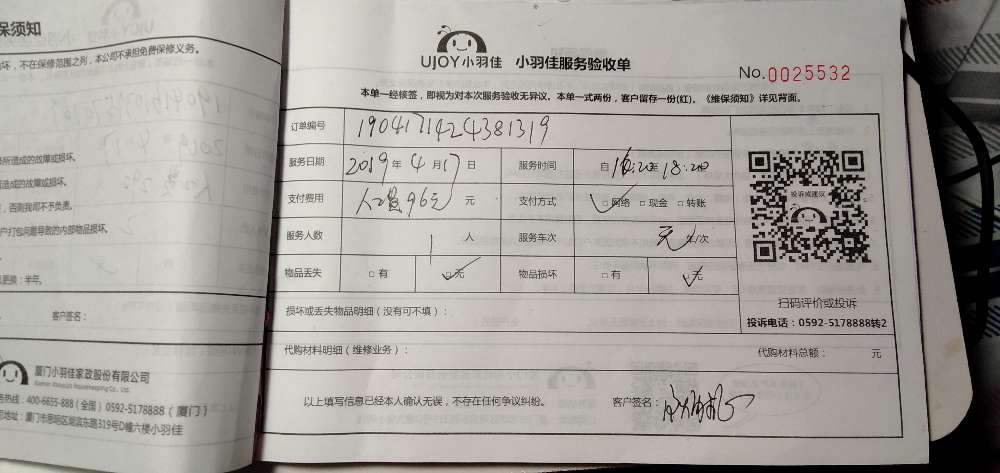 保须知
坏，不在保修范围之列，本公司不承担免费保修义务。
所造成的故障或损坏。
造成的故障或损坏。
，否则我司不予负责。
户打包问题导致的内部物品损坏。
更换：半年。
客户签名：
厦门小羽佳家政股份有限公司
务热线：400-6655-888（全国）0592-5178888（厦门）
地址：厦门市思明区湖滨东路319号D幢六楼小羽佳
UJOY小羽佳 小羽佳服务验收单
No.0025532
本单一经核签，即视为对本次服务验收无异议。本单一式两份，客户留存一份(红)。《维保须知》详见背面。
订单编号 1904171424381319
服务日期 2019年4月17日 服务时间 自16:20至18:20
支付费用 96元 元 支付方式 □网络 □现金 □转账
服务人数 1 人 服务车次 无 车/次
物品丢失 □有 □无 物品损坏 □有 □无
投诉或建议
扫码评价或投诉
投诉电话：0592-5178888转2
损坏或丢失物品明细（没有可不填）：
代购材料明细（维修业务）： 代购材料总额： 元
以上填写信息已经本人确认无误，不存在任何争议纠纷。 客户签名：